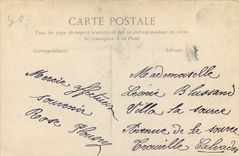 5-0
CARTE POSTALE
Tous les pays étrangers n'acceptent pas la correspondance au recto
Se renseigner à la Poste
Correspondance
Adresse
Merci
affectueux
souvenir
Rose
Mademoiselle
Léonie Blussand
Villa la source
Avenue de la source
Trouville Calvados